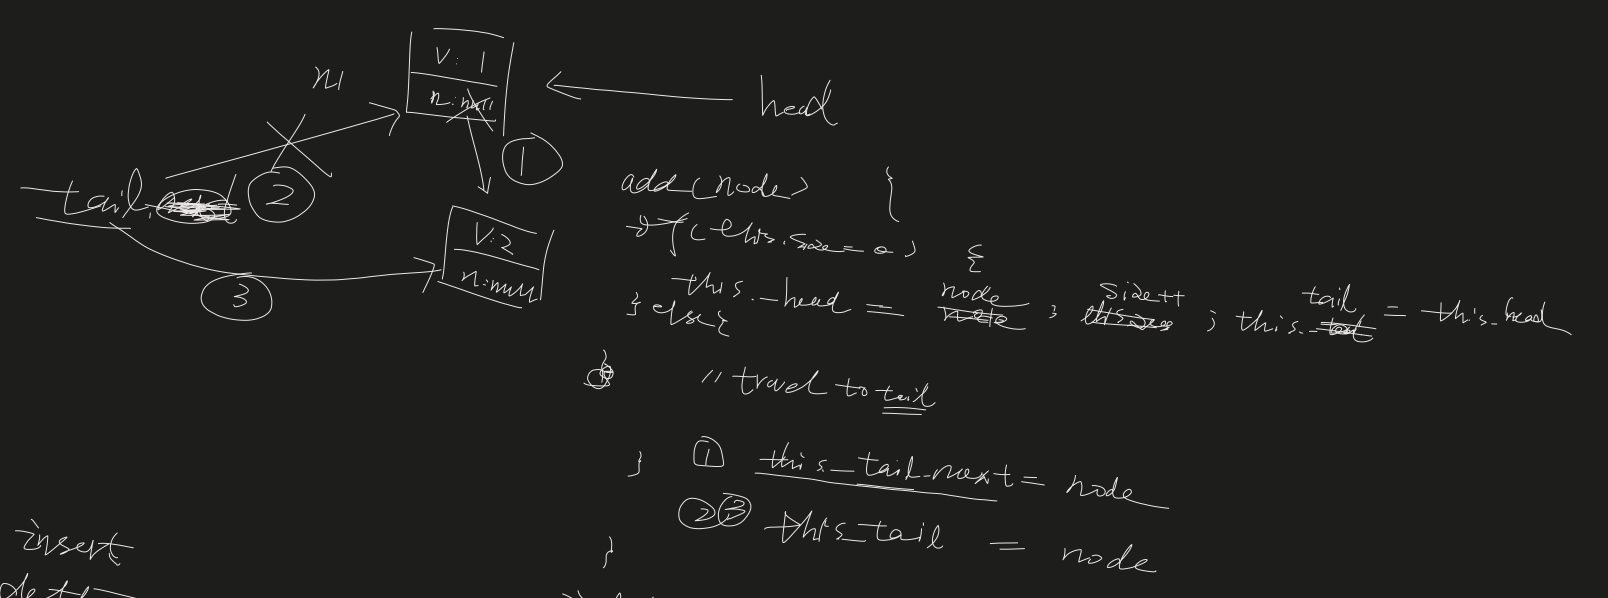 V: 1
n: null
n1
head
1
2
tail.
V: 2
n: null
3
add(node) {
if (this.size == 0) {
this.head = node ; size++ ; this.tail = this.head
} else {
// travel to tail
① this.tail.next = node
}
②③ this.tail = node
}
insert